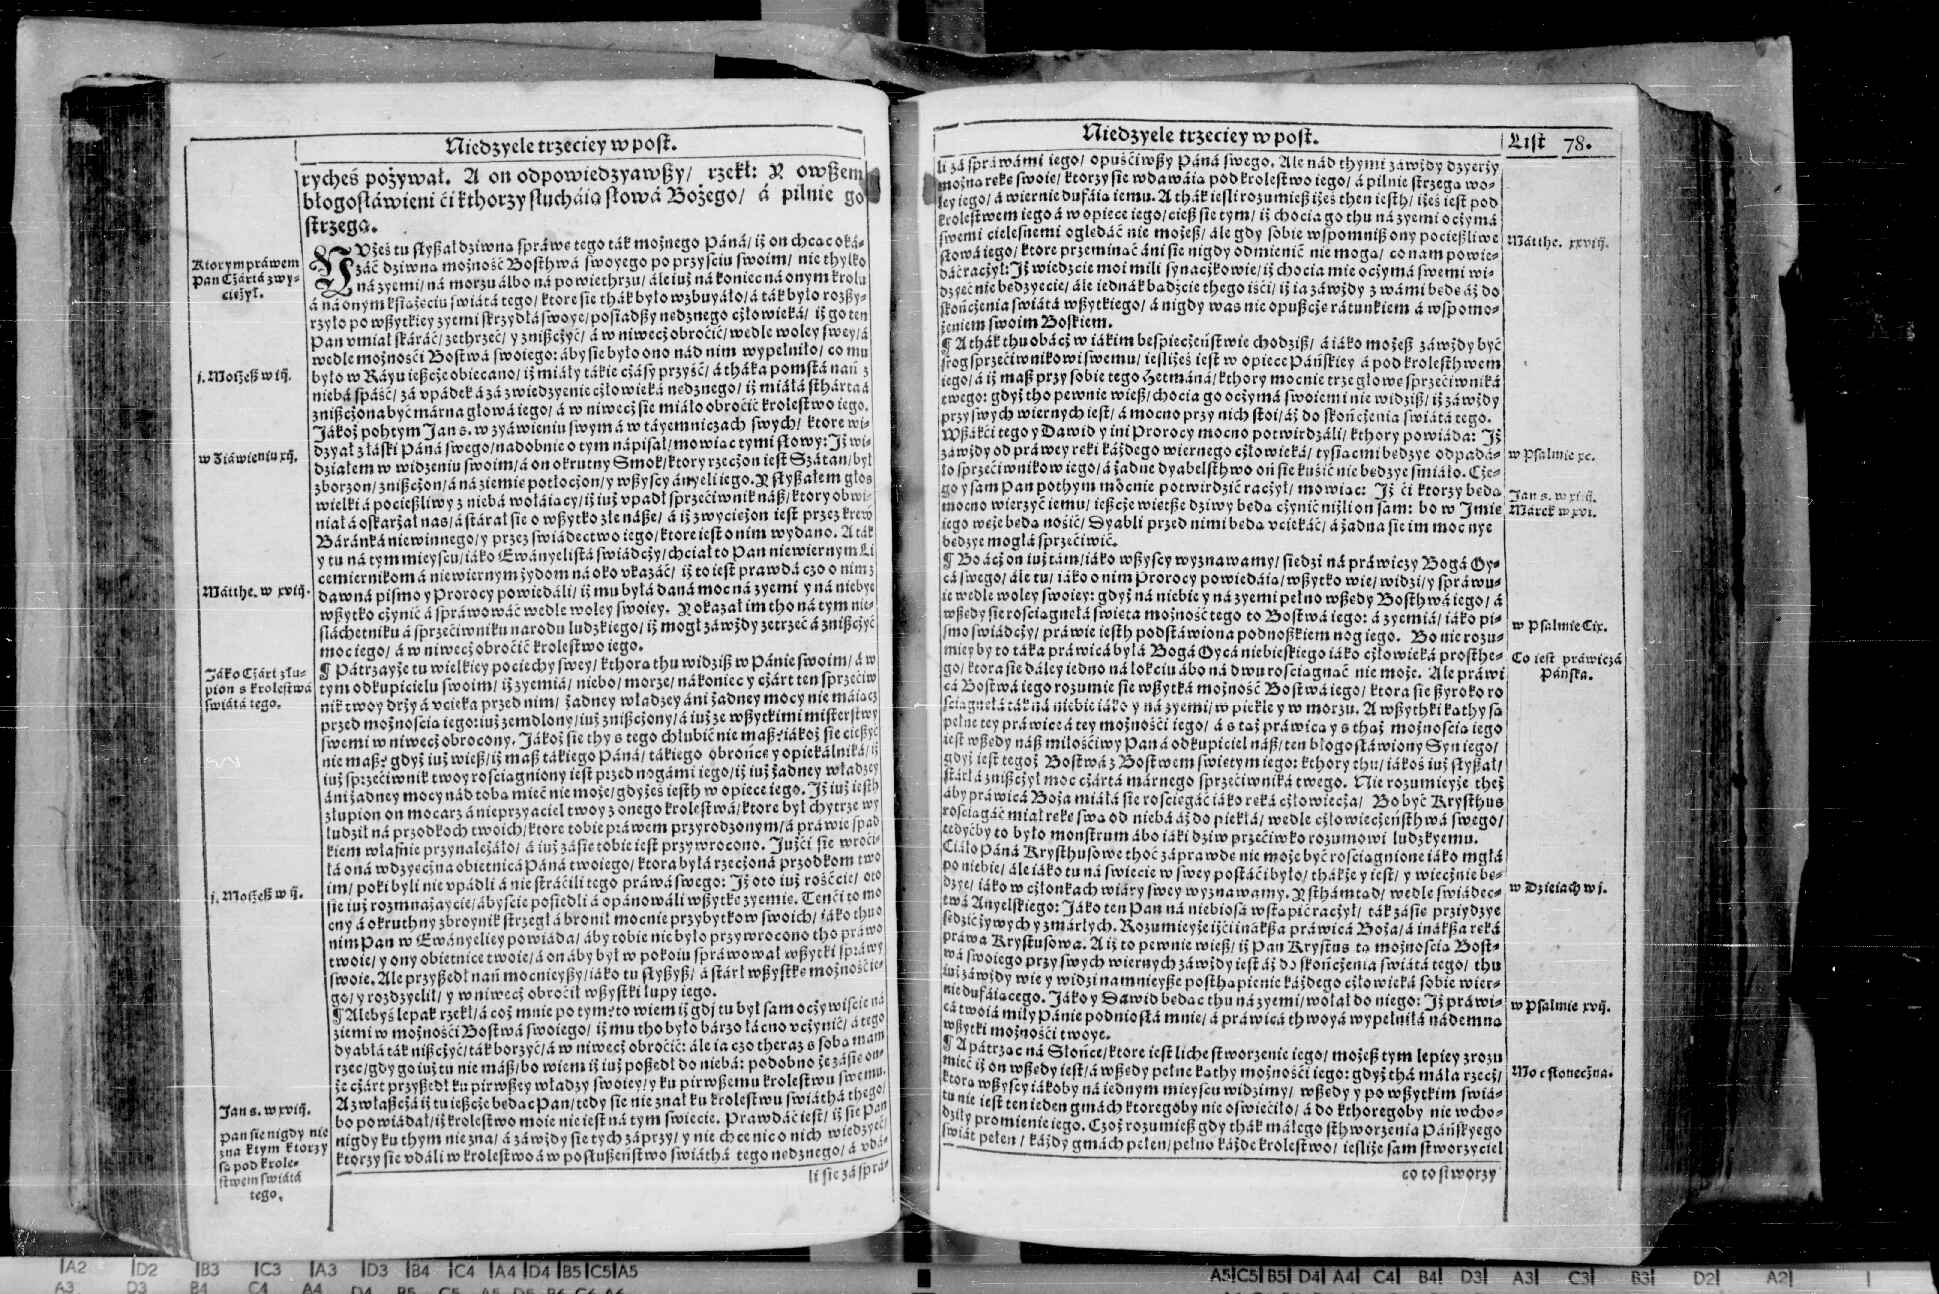 Niedzyele trzeciey w post.
rycheś pożywał. A on odpowiedzyawßy/ rzekł: Y owßem
błogosłáwieni ći kthorzy słucháią słowá Bożego/ á pilnie go
strzegą.
Ktorym práwem
Pan Czártá zwy-
ciężył.
j. Moiżeß w iij.
w Ziáwieniu xij.
Mátthe. w xviij.
Jáko Czárt złu-
pion s krolestwá
świátá tego.
j. Moiżeß w ij.
Jan s. w xviij.
Pan sie nigdy nie
zna k tym ktorzy
są pod krole-
stwem świátá
tego.
VZeś tu słyßał dziwną spráwę tego ták możnego Páná/ iż on chcąc oká-
záć dziwną możność Bosthwá swoyego po przyściu swoim/ nie thylko
ná zyemi/ ná morzu álbo ná powiethrzu/ ále iuż ná koniec ná onym krolu
á ná onym książęciu świátá tego/ ktore sie thák było wzbuyáło/ á ták było rozßy-
rzyło po wßytkiey zyemi skrzydłá swoye/ posiadßy nędznego człowieká/ iż go ten
Pan vmiał skáráć/ zethrzeć/ y znißczyć/ á w niwecz obroćić/ wedle woley swey/ á
wedle możnośći Bostwá swoiego: áby sie było ono nád nim wypełniło/ co mu
było w Ráyu ießcze obiecano/ iż miáły tákie czásy przyść/ á tháka pomstá nań z
niebá spáść/ zá vpadek á zá zwiedzyenie człowieká nędznego/ iż miáłá sthárta á
znißczona być márna głowá iego/ á w niwecz sie miáło obroćić krolestwo iego.
Jákoż pohtym Jan s. w zyáwieniu swym á w táyemniczach swych/ ktore wi-
dzyał z łáski Páná swego/ nadobnie o tym nápisał/ mowiąc tymi słowy: Iż wi-
działem w widzeniu swoim/ á on okrutny Smok/ ktory rzeczon iest Szátan/ był
zborzon/ znißczon/ á ná ziemie potłoczon/ y wßyscy ányeli iego. Y słyßałem głos
wielki á pocießliwy z niebá wołáiący/ iż iuż vpadł sprzećiwnik náß/ ktory obwi-
niał á oskarżał nas/ á stárał sie o wßytko złe náße/ á iż zwyciężon iest przez krew
Báránká niewinnego/ y przez świádectwo iego/ ktore iest o nim wydano. A ták
y tu ná tym mieyscu/ iáko Ewányelistá świádczy/ chciał to Pan niewiernym Li
cemiernikom á niewiernym żydom ná oko vkazáć/ iż to iest prawdá czo o nim z
dawná pismo y Prorocy powiedáli/ iż mu byłá daná moc ná zyemi y ná niebye
wßytko czynić á spráwowáć wedle woley swoiey. Y okazał im tho ná tym nie-
ślachetniku á sprzećiwniku narodu ludzkiego/ iż mogł záwżdy zetrzeć á znißczyć
moc iego/ á w niwecz obroćić krolestwo iego.
¶ Pátrzayże tu wielkiey pociechy swey/ kthorą thu widziß w Pánie swoim/ á w
tym odkupicielu swoim/ iż zyemiá/ niebo/ morze/ nákoniec y czárt ten sprzećiw
nik twoy drży á vcieka przed nim/ żadney władzey áni żadney mocy nie máiącz
przed możnością iego: iuż zemdlony/ iuż znißczony/ á iuż ze wßytkimi misterstwy
swemi w niwecz obrocony. Jákoż sie thy s tego chlubić nie maß? iákoż sie cießyć
nie maß? gdyż iuż wieß/ iż maß tákiego Páná/ tákiego obrońcę y opiekálniká/ iż
iuż sprzećiwnik twoy rosciągniony iest przed nogámi iego/ iż iuż żadney władzey
áni żadney mocy nád tobą mieć nie może/ gdyżeś iesth w opiece iego. Iż iuż iesth
złupion on mocarz á nieprzyaciel twoy z onego krolestwá/ ktore był chytrze wy
łudził ná przodkoch twoich/ ktore tobie práwem przyrodzonym/ á práwie spad
kiem własnie przynależáło/ á iuż zásie tobie iest przywrocono. Jużći sie wroći-
łá oná wdzyęczna obietnicá Páná twoiego/ ktora byłá rzeczona przodkom two
im/ poki byli nie vpádli á nie stráćili tego práwá swego: Iż oto iuż rośćcie/ oto
sie iuż rozmnażaycie/ ábyscie posiedli á opánowáli wßytkę zyemię. Tenći to mo
cny á okruthny zbroynik strzegł á bronił mocnie przybytkow swoich/ iáko thu o
nim Pan w Ewányeliey powiáda/ áby tobie nie było przywrocono tho práwo
twoie/ y ony obietnice twoie/ á on áby był w pokoiu spráwował wßytki spráwy
swoie. Ale przyßedł nań mocnieyßy/ iáko tu słyßyß/ á stárł wßystkę możność ie-
go/ y rozdzyelił/ y w niwecz obroćił wßystki łupy iego.
¶ Alebyś lepak rzekł/ á coż mnie po tym? to wiem iż gdj tu był sam oczywiście ná
ziemi w możnośći Bostwá swoiego/ iż mu tho było bárzo łácno vczynić/ á tego
dyabłá ták nißczyć/ ták borzyć/ á w niwecz obroćić: ále ia czo theraz s sobą mam
rzec/ gdy go iuż tu nie máß/ bo wiem iż iuż poßedł do niebá: podobno że zásie on-
że czárt przyßedł ku pirwßey władzy swoiey/ y ku pirwßemu krolestwu swemu.
A zwłaßczá iż tu ießcze będąc Pan/ tedy sie nie znał ku krolestwu świáthá thego/
bo powiádał/ iż krolestwo moie nie iest ná tym świecie. Prawdáć iest/ iż sie Pan
nigdy ku thym nie zna/ á záwżdy sie tych záprzy/ y nie chce nic o nich wiedzyeć/
ktorzy sie vdáli w krolestwo á w posłußeństwo świáthá tego nędznego/ á vdá-
li sie zá sprá-
Niedzyele trzeciey w post.
List 78.
li zá spráwámi iego/ opuśćiwßy Páná swego. Ale nád thymi záwżdy dzyerży
możną rękę swoię/ ktorzy sie wdawáią pod krolestwo iego/ á pilnie strzegą wo-
ley iego/ á wiernie dufáią iemu. A thák iesli rozumieß iżeś then iesth/ iżeś iest pod
krolestwem iego á w opiece iego/ cieß sie tym/ iż chocia go thu ná zyemi oczymá
swemi cielesnemi oględáć nie możeß/ ále gdy sobie wspomniß ony pocießliwe
słowá iego/ ktore przeminąć áni sie nigdy odmienić nie mogą/ co nam powie-
dáć raczył: Iż wiedzcie moi mili synaczkowie/ iż chocia mie oczymá swemi wi-
dzyeć nie będzyecie/ ále iednák bądźcie thego iśći/ iż ia záwżdy z wámi będę áż do
skończenia świátá wßytkiego/ á nigdy was nie opußczę rátunkiem á wspomo-
żeniem swoim Boskiem.
¶ A thák thu obacż w iákim bespieczeństwie chodziß/ á iáko możeß záwżdy być
srog sprzećiwnikowi swemu/ iesliżeś iest w opiece Páńskiey á pod krolesthwem
iego/ á iż maß przy sobie tego Hetmáná/ kthory mocnie trze głowę sprzećiwniká
twego: gdyż tho pewnie wieß/ chocia go oczymá swoiemi nie widziß/ iż záwżdy
przy swych wiernych iest/ á mocno przy nich stoi/ áż do skończenia świátá tego.
Wßákći tego y Dawid y ini Prorocy mocno potwirdzáli/ kthory powiáda: Iż
záwżdy od práwey ręki káżdego wiernego człowieká/ tysiącmi będzye odpadá-
ło sprzećiwnikow iego/ á żadne dyabelsthwo oń sie kusić nie będzye śmiáło. Cze-
go y sam Pan pothym mocnie potwirdzić raczył/ mowiąc: Iż ći ktorzy będą
mocno wierzyć iemu/ ießcze więtße dziwy będą czynić niżli on sam: bo w Imię
iego węże będą nośić/ Dyabli przed nimi będą vciekáć/ á żadna sie im moc nye
będzye mogłá sprzećiwić.
¶ Bo ácz on iuż tám/ iáko wßyscy wyznawamy/ siedzi ná práwiczy Bogá Oy-
cá swego/ ále tu/ iáko o nim Prorocy powiedáią/ wßytko wie/ widzi/ y spráwu-
ie wedle woley swoiey: gdyż ná niebie y ná zyemi pełno wßędy Bosthwá iego/ á
wßędy sie rosciągnęłá święta możność tego to Bostwá iego: á zyemiá/ iáko pi-
smo świádczy/ práwie iesth podstáwiona podnożkiem nog iego. Bo nie rozu-
miey by to táka práwicá byłá Bogá Oycá niebieskiego iáko człowieká prosthe-
go/ ktora sie dáley iedno ná łokciu ábo ná dwu rosciągnąć nie może. Ale práwi
cá Bostwá iego rozumie sie wßytká możność Bostwá iego/ ktora sie ßyroko ro
sciągnęłá ták ná niebie iáko y ná zyemi/ w piekle y w morzu. A wßythki kąthy są
pełne tey práwice á tey możnośći iego/ á s tąż práwicą y s thąż możnoscią iego
iest wßędy náß miłośćiwy Pan á odkupiciel náß/ ten błogosłáwiony Syn iego/
gdyż iest tegoż Bostwá z Bostwem świętym iego: kthory thu/ iákoś iuż słyßał/
stárł á znißczył moc czártá márnego sprzećiwniká twego. Nie rozumieyże theż
áby práwicá Boża miáłá sie rosciegáć iáko ręká człowiecza/ Bo być Krysthus
rosciągáć miał rękę swą od niebá áż do piekłá/ wedle człowieczeństhwá swego/
tedyćby to było monstrum ábo iáki dziw przećiwko rozumowi ludzkyemu.
Ciáło Páná Krysthusowe thoć záprawdę nie może być rosciągnione iáko mgłá
po niebie/ ále iáko tu ná świecie w swey postáći było/ thákże y iest/ y wiecznie bę-
dzye/ iáko w członkach wiáry swey wyznawamy. Y sthámtąd/ wedle świádec-
twá Anyelskiego: Jáko ten Pan ná niebiosá wstąpić raczył/ ták zásie przyidzye
sędzić żywych y zmárłych. Rozumieyże iżći inákßa práwicá Boża/ á inákßa ręká
práwa Krystusowa. A iż to pewnie wieß/ iż Pan Krystus tą możnoscią Bost-
wá swoiego przy swych wiernych záwżdy iest áż do skończenia świátá tego/ thu
iuż záwżdy wie y widzi namnieyße posthąpienie káżdego człowieká sobie wier-
nie dufáiącego. Jáko y Dawid będąc thu ná zyemi/ wołał do niego: Iż práwi-
cá twoiá miły Pánie podniosłá mnie/ á práwicá thwoyá wypełniłá nádemną
wßytki możnośći twoye.
¶ A pátrząc ná Słońce/ ktore iest liche stworzenie iego/ możeß tym lepiey zrozu
mieć iż on wßędy iest/ á wßędy pełne kąthy możnośći iego: gdyż thá máła rzecz/
ktorą wßyscy iákoby ná iednym mieyscu widzimy/ wßędy y po wßytkim świá-
tu nie iest ten ieden gmách ktoregoby nie oświećiło/ á do kthoregoby nie wcho-
dziły promienie iego. Czoż rozumieß gdy thák máłego sthworzenia Páńskyego
świát pełen/ káżdy gmách pełen/ pełno káżde krolestwo/ iesliże sam stworzyciel
co to stworzy
Mátthe. xxviij.
w Psalmie xc.
Jan s. w xiiij.
Márek w xvi.
w Psalmie Cix.
Co iest práwiczá
Páńska.
w Dzieiach w j.
w Psalmie xvij.
Moc słoneczna.